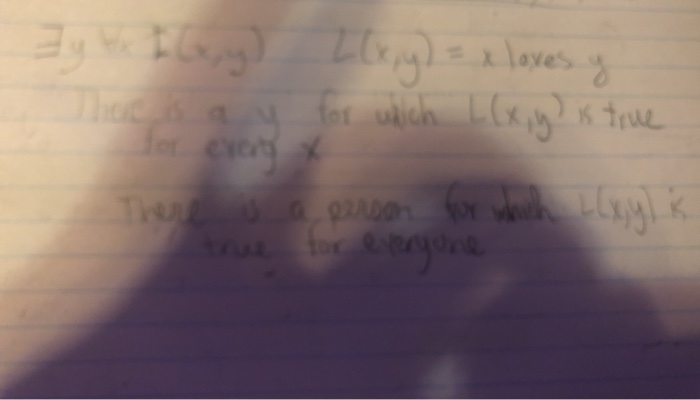 ∃y ∀x L(x,y) L(x,y) = x loves y
There is a y for which L(x,y) is true
for every x
There is a person for which L(x,y) is
true for everyone